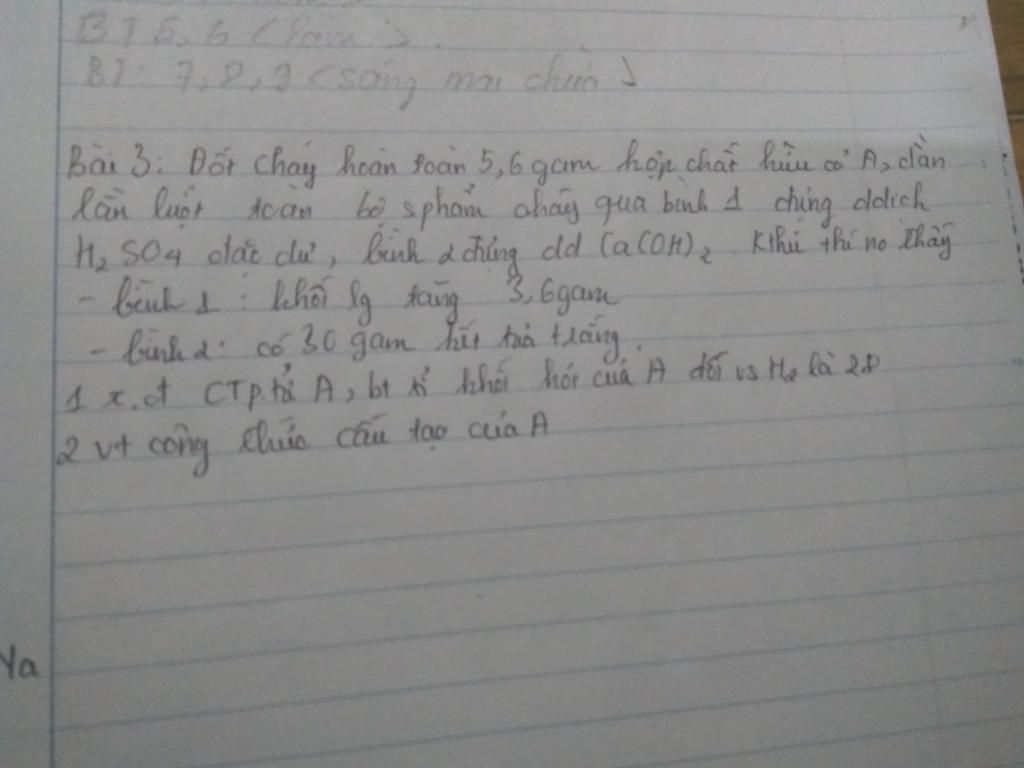 BT 5, 6 (làm).
BT: 7, 8, 9 (sáng mai chữa)
Bài 3: Đốt cháy hoàn toàn 5,6 gam hợp chất hữu cơ A, dẫn
lần lượt toàn bộ sphẩm cháy qua bình 1 đựng ddich
H₂SO₄ đặc dư, bình 2 đựng dd Ca(OH)₂ Kthu thí no thấy
- bình 1 : khối lg tăng 3,6gam
- bình 2: có 30 gam kết tủa trắng.
1 x.đ CTp.tử A, bt tỉ khối hơi của A đối vs H₂ là 28
2 vt công thức cấu tạo của A
Ya